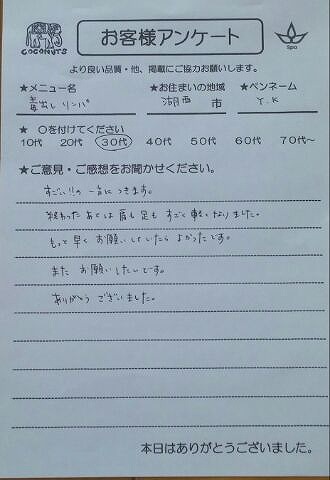 COCONUTS
お客様アンケート
Spa
より良い品質・他、掲載にご協力お願いします。
★メニュー名 ★お住まいの地域 ★ペンネーム
毒出しリンパ 湖西 市 Y.K
★ ○を付けてください
10代 20代 30代 40代 50代 60代 70代～
★ご意見・ご感想をお聞かせください。
すごい!!の一言につきます。
終わったあとは肩も足もすごく軽くなりました。
もっと早くお願いしていたらよかったです。
またお願いしたいです。
ありがとうございました。
本日はありがとうございました。